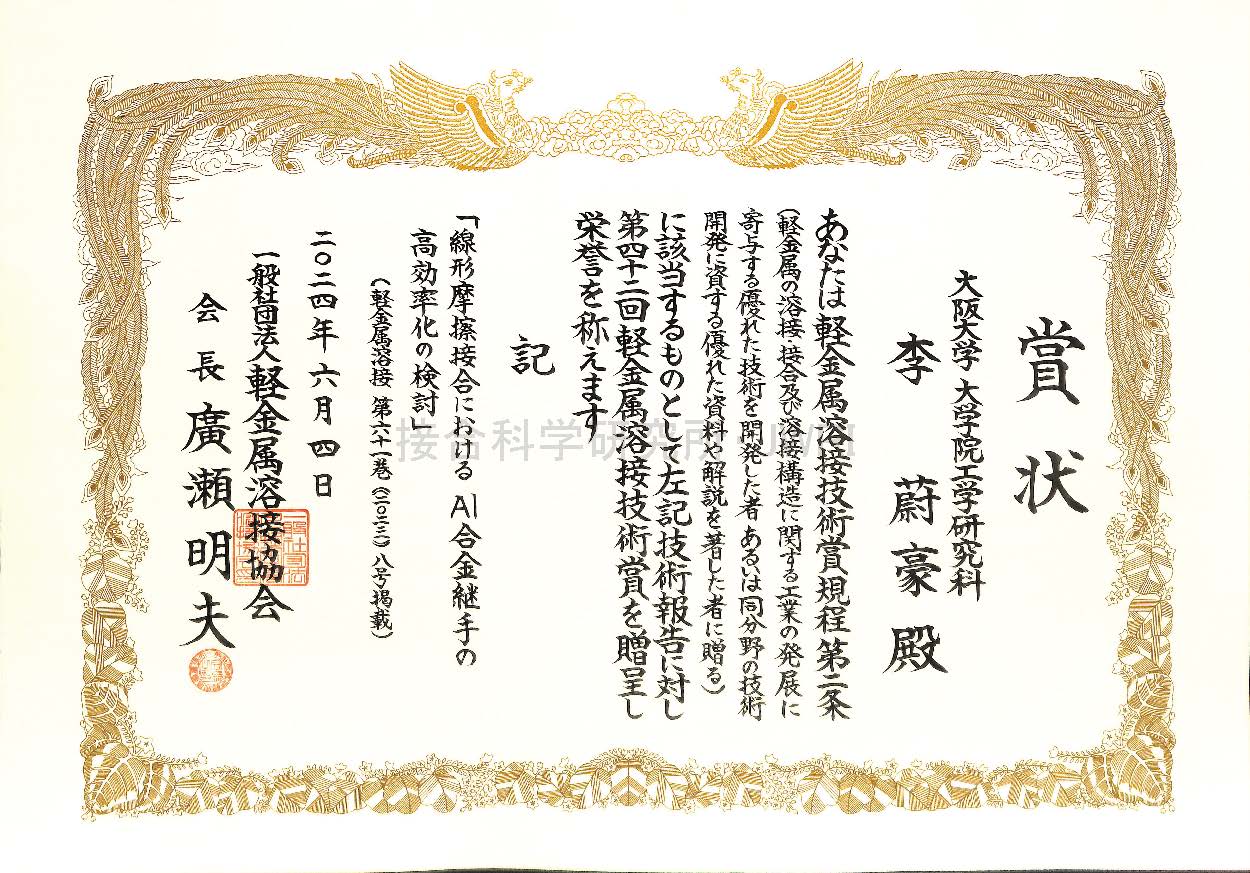 賞状
大阪大学 大学院工学研究科
李 蔚豪 殿
あなたは軽金属溶接技術賞規程第二条
(軽金属の溶接・接合及び溶接構造に関する工業の発展に
寄与する優れた技術を開発した者 あるいは同分野の技術
開発に資する優れた資料や解説を著した者に贈る)
に該当するものとして左記技術報告に対し
第四十二回軽金属溶接技術賞を贈呈し
栄誉を称えます
記
「線形摩擦接合における Al合金継手の
高効率化の検討」
(軽金属溶接 第六十一巻(二〇二三)八号掲載)
二〇二四年六月四日
一般社団法人軽金属溶接協会
会長 廣瀬明夫
接合科学研究所